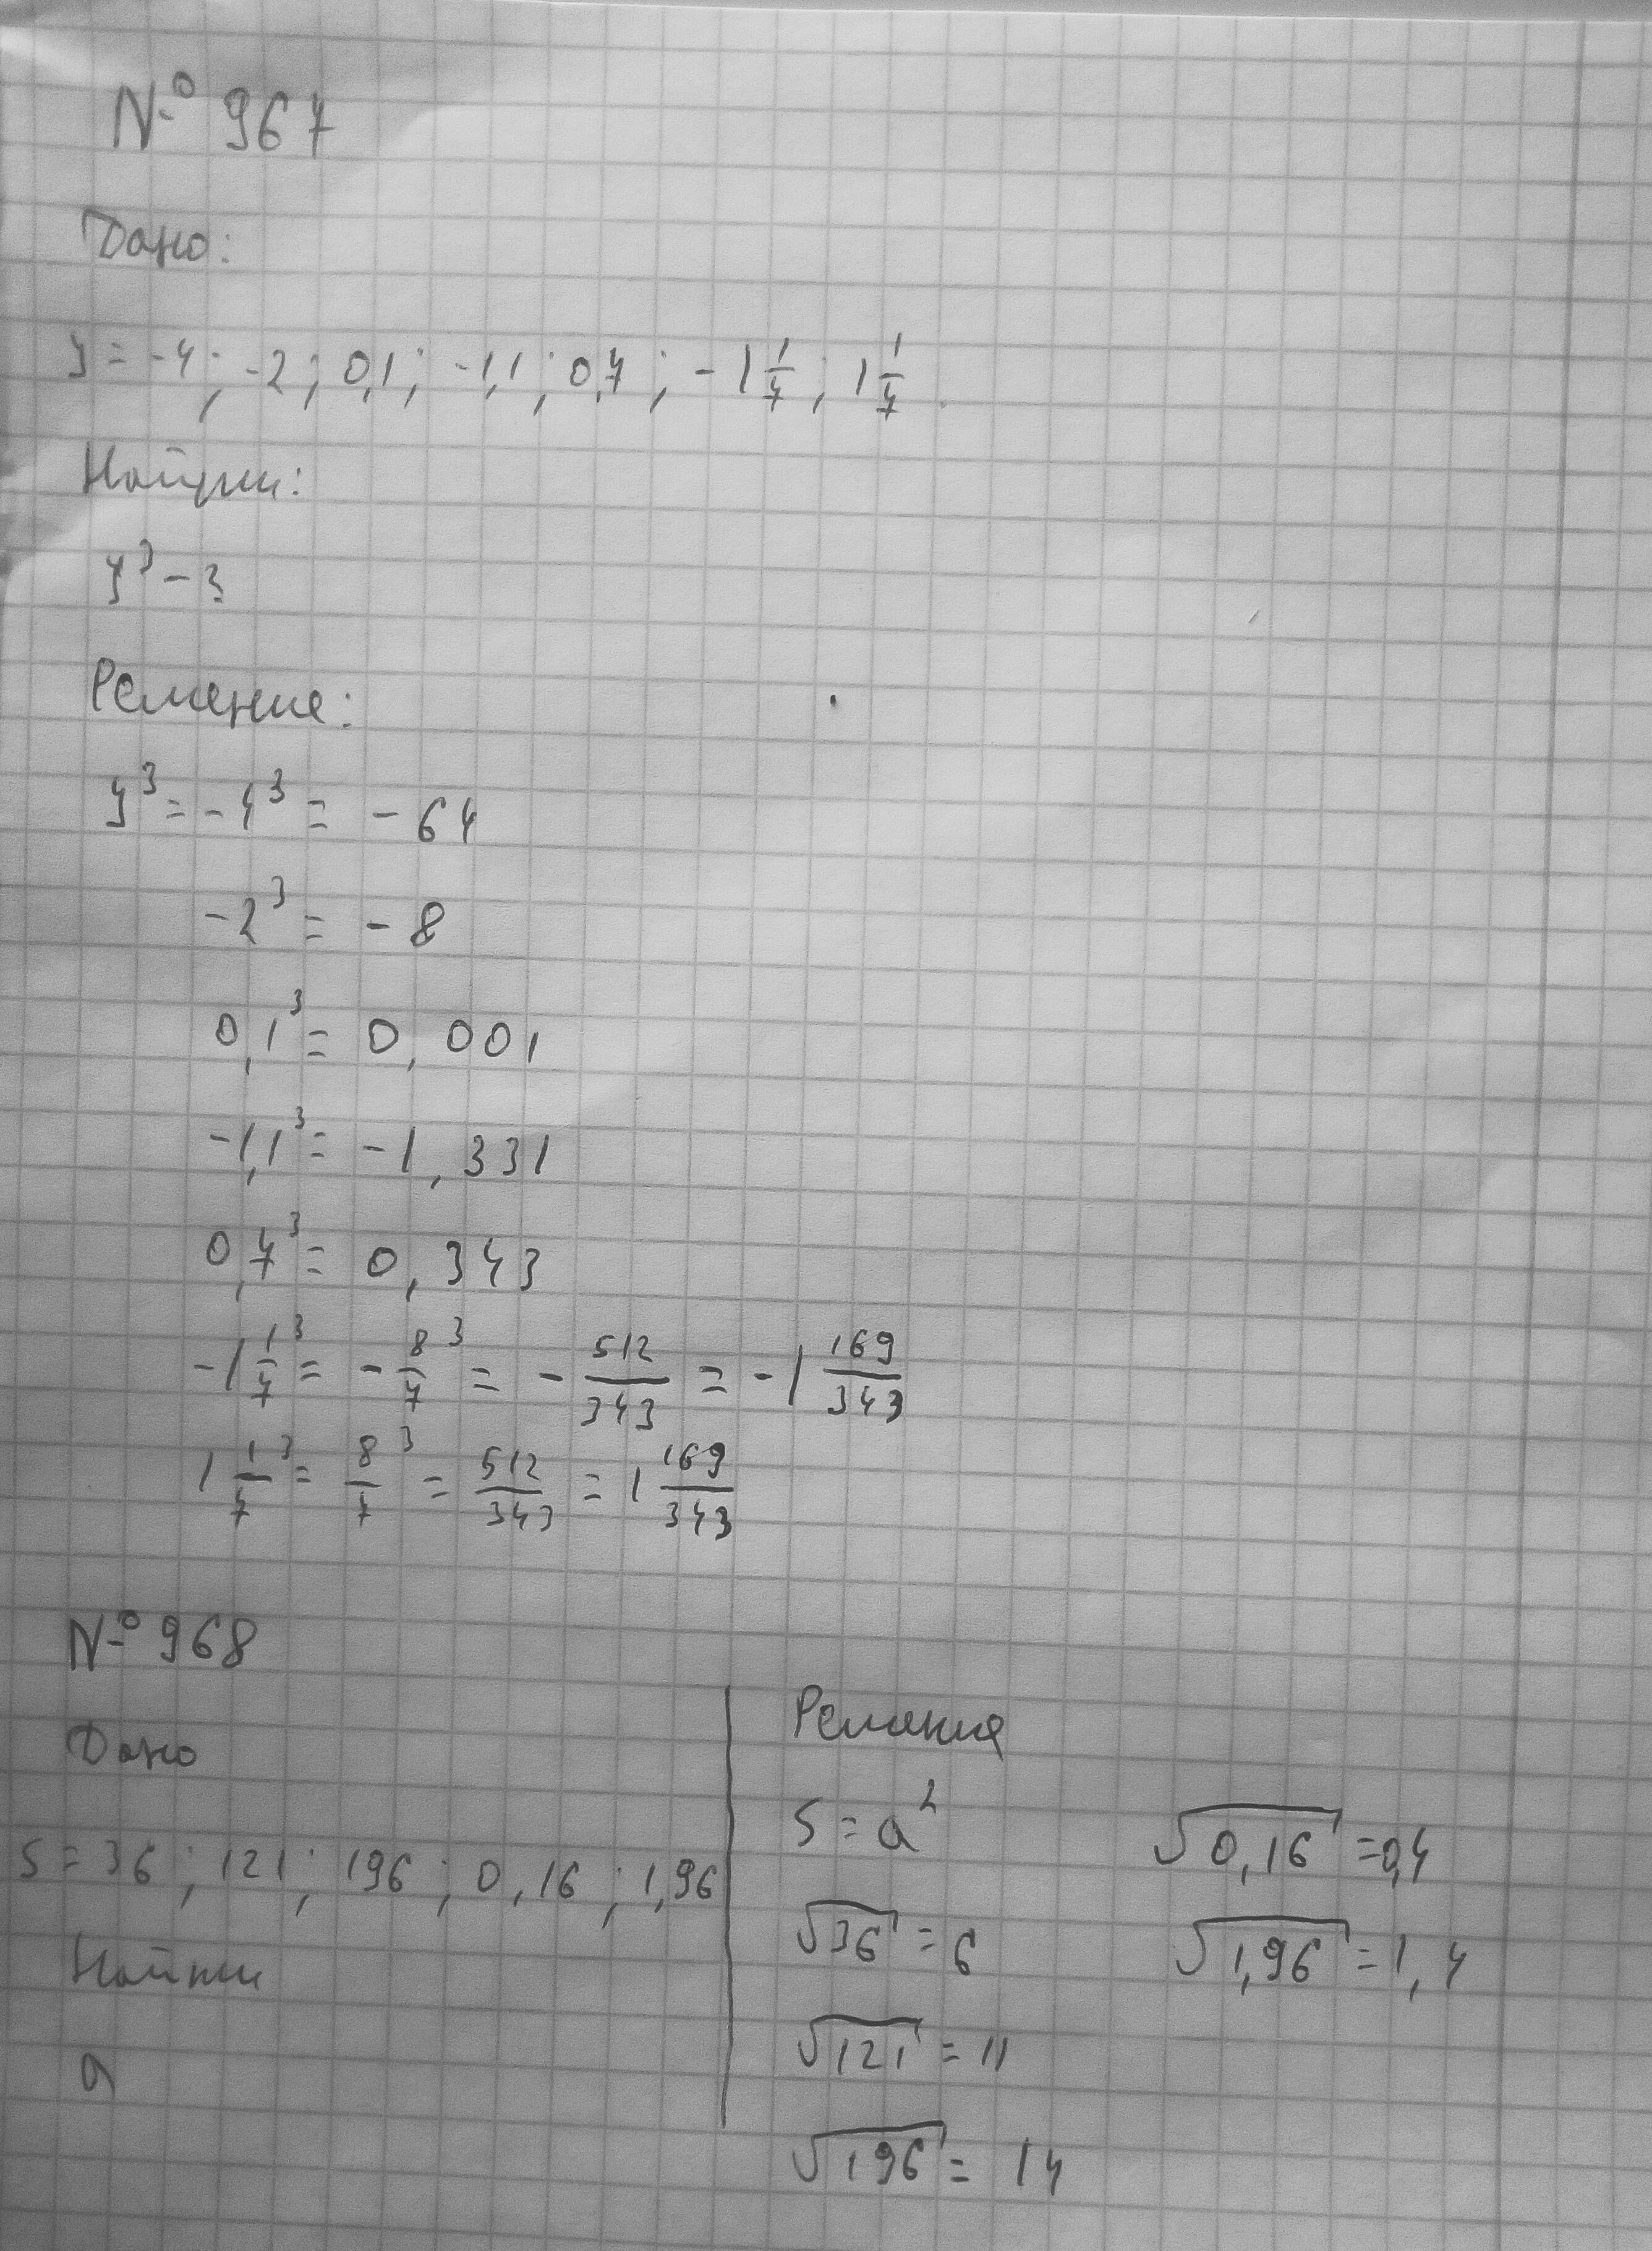 № 967
Дано:
y = -4; -2; 0,1; -1,1; 0,7; -1 1/7; 1 1/7.
Найти:
y³ - ?
Решение:
y³ = -4³ = -64
-2³ = -8
0,1³ = 0,001
-1,1³ = -1,331
0,7³ = 0,343
-1 1/7³ = -8/7³ = -512/343 = -1 169/343
1 1/7³ = 8/7³ = 512/343 = 1 169/343
№ 968
Дано
S = 36; 121; 196; 0,16; 1,96
Найти
a
Решение
S = a²
√36 = 6
√121 = 11
√196 = 14
√0,16 = 0,4
√1,96 = 1,4